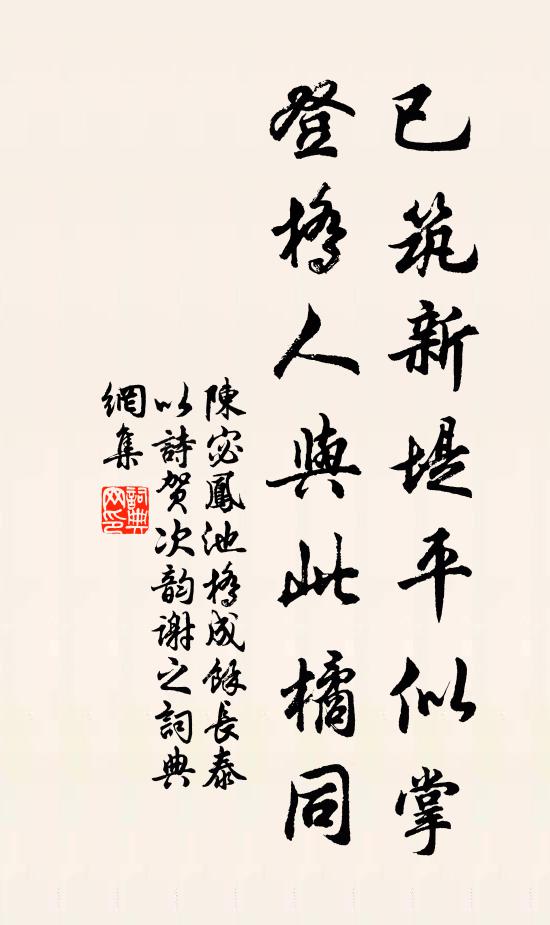 已筑新堤平似掌
登橋人與此橘同
陳宓鳳池橋成餘長泰
以詩賀次韵谢之詞典
網集
詞典
网印